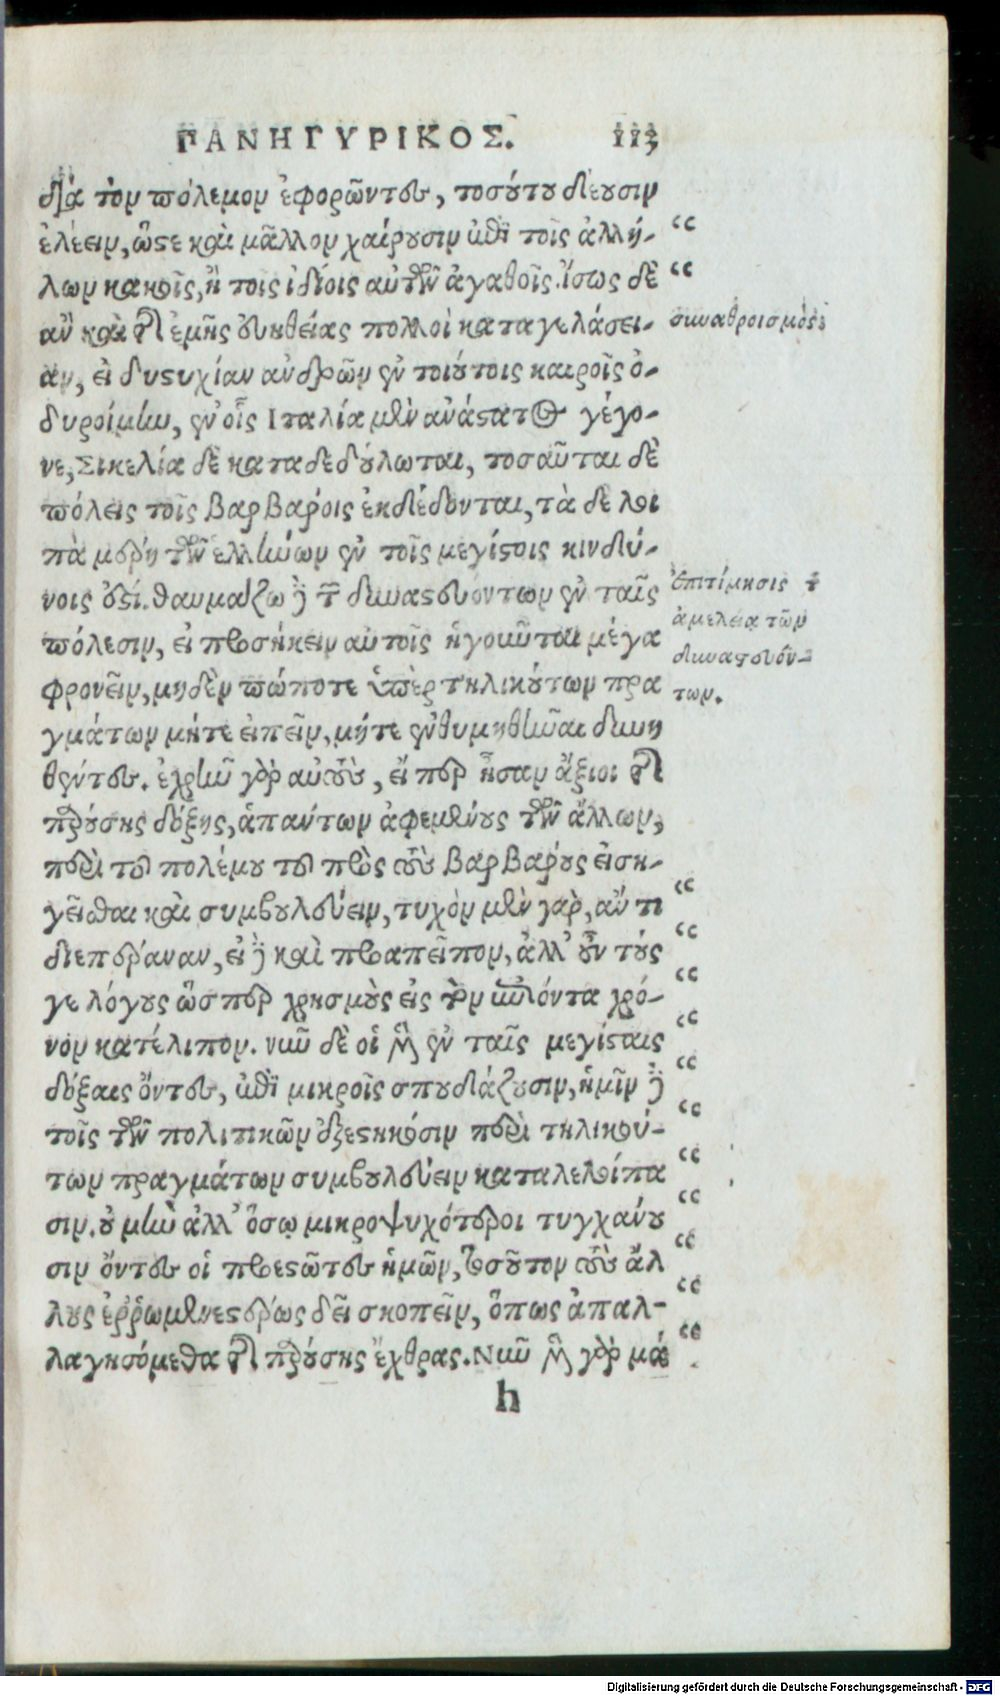 ΠΑΝΗΓΥΡΙΚΟΣ. 113
διὰ τὸν πόλεμον ἐφορῶντες, τοσούτου δέουσιν
ἐλεεῖν, ὥστε καὶ μᾶλλον χαίρουσιν ἐπὶ τοῖς ἀλλή-
λων κακοῖς, ἢ τοῖς ἰδίοις αὐτῶν ἀγαθοῖς. ἴσως δὲ
ἂν καὶ τῆς ἐμῆς εὐηθείας πολλοὶ καταγελάσει-
αν, εἰ δυστυχίαν ἀνδρῶν ἐν τοιούτοις καιροῖς ὀ-
δυροίμην, ἐν οἷς Ἰταλία μὲν ἀνάστατος γέγο-
νε, Σικελία δὲ καταδεδούλωται, τοσαῦται δὲ
πόλεις τοῖς βαρβάροις ἐκδέδονται, τὰ δὲ λοι
πὰ μέρη τῶν ἑλλήνων ἐν τοῖς μεγίστοις κινδύ-
νοις ἐστί. θαυμάζω δὲ τῶν δυναστευόντων ἐν ταῖς
πόλεσιν, εἰ προσήκειν αὐτοῖς ἡγοῦνται μέγα
φρονεῖν, μηδὲν πώποτε ὑπὲρ τηλικούτων πρα
γμάτων μήτε εἰπεῖν, μήτε ἐνθυμηθῆναι δυνη
θέντες. ἐχρῆν γὰρ αὐτοὺς, εἴπερ ἦσαν ἄξιοι τῆς
παρούσης δόξης, ἁπάντων ἀφεμένους τῶν ἄλλων,
περὶ τοῦ πολέμου τοῦ πρὸς τοὺς βαρβάρους εἰση-
γεῖσθαι καὶ συμβουλεύειν, τυχὸν μὲν γὰρ, ἄν τι
διεπέραναν, εἰ δὲ καὶ προαπεῖπον, ἀλλ' οὖν τούς
γε λόγους ὥσπερ χρησμοὺς εἰς τὸν ἐπιόντα χρό-
νον κατέλιπον. νῦν δὲ οἱ μὲν ἐν ταῖς μεγίσταις
δόξαις ὄντες, ἐπὶ μικροῖς σπουδάζουσιν, ἡμῖν δὲ
τοῖς τῶν πολιτικῶν ἐξεστηκόσιν περὶ τηλικού-
των πραγμάτων συμβουλεύειν καταλελοίπα
σιν. οὐ μὴν ἀλλ' ὅσῳ μικροψυχότεροι τυγχάνου
σιν ὄντες οἱ προεστῶτες ἡμῶν, τοσοῦτον τοὺς ἄλ
λους ἐῤῥωμενεστέρως δεῖ σκοπεῖν, ὅπως ἀπαλ-
λαγησόμεθα τῆς παρούσης ἔχθρας. Νῦν μὲν γὰρ μά
h
συναθροισμός
ἐπιτίμησις τῆς
ἀμελείας τῶν
δυναστευόν-
των.
Digitalisierung gefördert durch die Deutsche Forschungsgemeinschaft - DFG